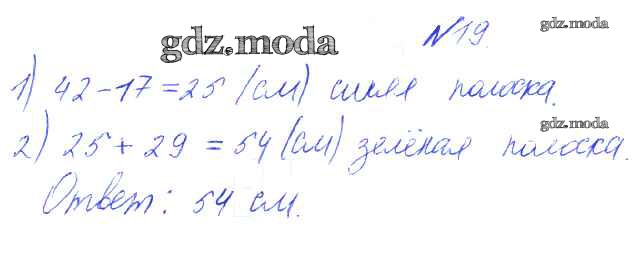 №19.
gdz.moda
gdz.moda
1) 42-17=25 (см) синяя полоска.
gdz.moda
2) 25+29=54 (см) зелёная полоска.
Ответ: 54 см.